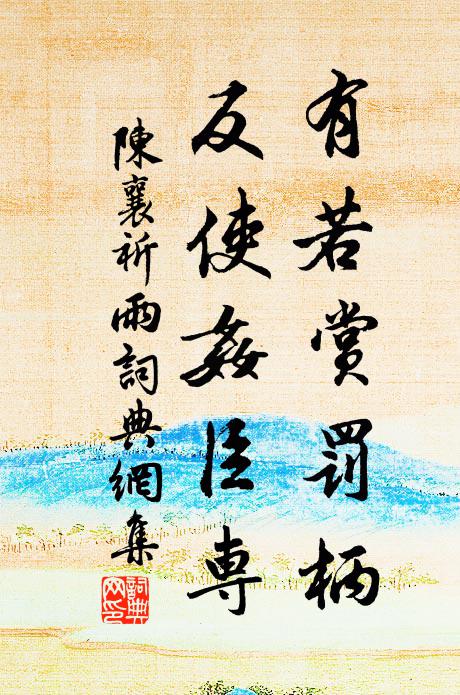 有若賞罰柄
反使姦臣専
陳襄祈雨詞典網集